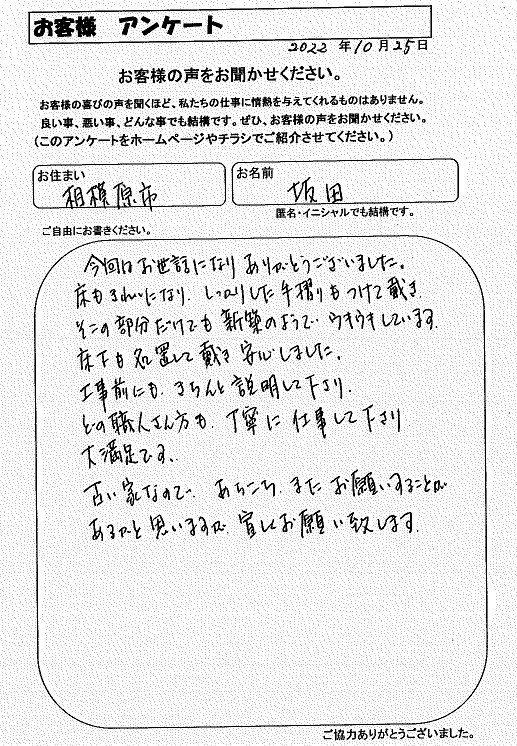 お客様 アンケート
2022 年 10 月 25 日
お客様の声をお聞かせください。
お客様の喜びの声を聞くほど、私たちの仕事に情熱を与えてくれるものはありません。
良い事、悪い事、どんな事でも結構です。ぜひ、お客様の声をお聞かせください。
(このアンケートをホームページやチラシでご紹介させてください。)
お住まい 相模原市
お名前 坂田
匿名・イニシャルでも結構です。
ご自由にお書きください。
今回はお世話になりありがとうございました。
床もきれいになり、しっかりした手摺りもつけて戴き
そこの部分だけでも新築のようで、ウキウキしています。
床下も処置して戴き安心しました。
工事前にも、きちんと説明して下さり、
どの職人さん方も、丁寧に仕事して下さり
大満足です。
古い家なので、あちこち、またお願いすることが
あるかと思いますが、宜しくお願い致します。
ご協力ありがとうございました。